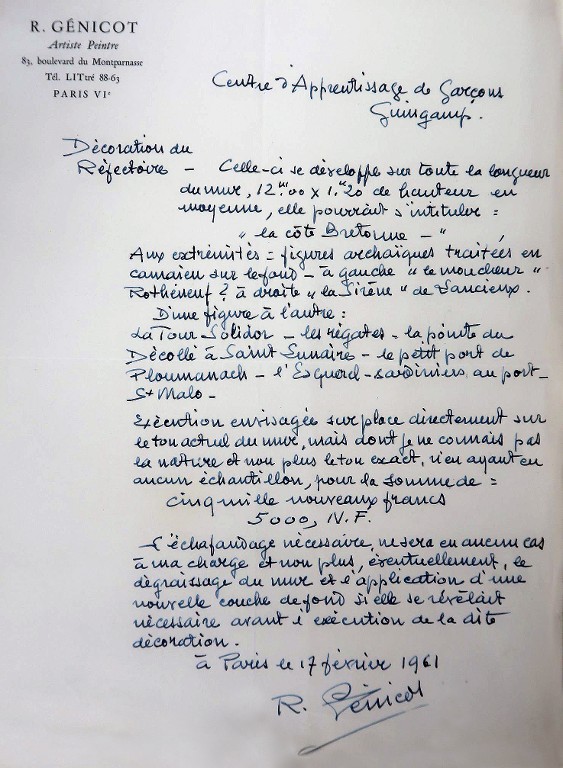 R. GÉNICOT
Artiste Peintre
83, boulevard du Montparnasse
Tél. LITtré 88-63
PARIS VIe
Centre d'Apprentissage de Garçons
Guingamp.
Décoration du
Réfectoire – Celle-ci se développe sur toute la longueur
du mur, 12m00 x 1m20 de hauteur en
moyenne, elle pourrait s'intituler =
" la côte Bretonne – "
Aux extrémités = figures archaïques traitées en
camaïeu sur le fond – à gauche " le moucheur "
Rothéneuf ? à droite " la Sirène " de Lancieux.
D'une figure à l'autre :
La Tour Solidor – les régates – la pointe du
Décollé à Saint Lunaire – le petit port de
Ploumanach – l'Esquerd – sardiniers au port –
St Malo –
Exécution envisagée sur place directement sur
le ton actuel du mur, mais dont je ne connais pas
la nature et non plus le ton exact, n'en ayant eu
aucun échantillon, pour la somme de =
cinq mille nouveaux francs
5000, N.F.
L'échafaudage nécessaire, ne sera en aucun cas
à ma charge et non plus, éventuellement, le
dégraissage du mur et l'application d'une
nouvelle couche de fond si elle se révélait
nécessaire avant l'exécution de la dite
décoration.
à Paris le 17 février 1961
R. Génicot